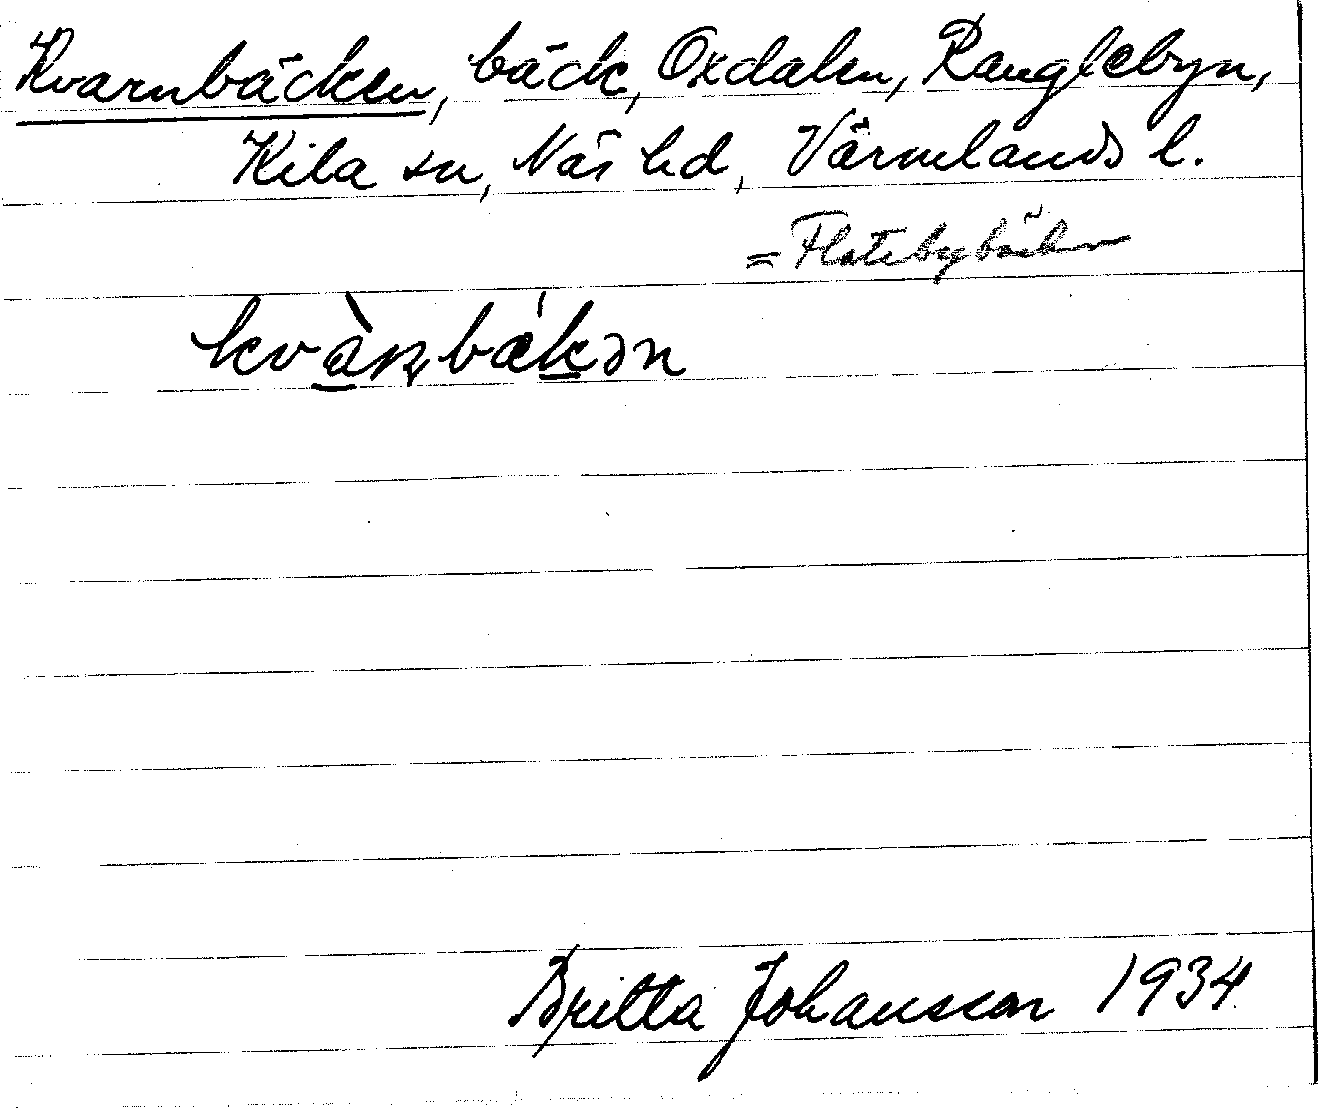 Kvarnbäcken, bäck, Oxdalen, Ranglebyn,
Kila sn, Näs hd, Värmlands l.
= Flatebybäcken
kvànbækən
Britta Johansson 1934